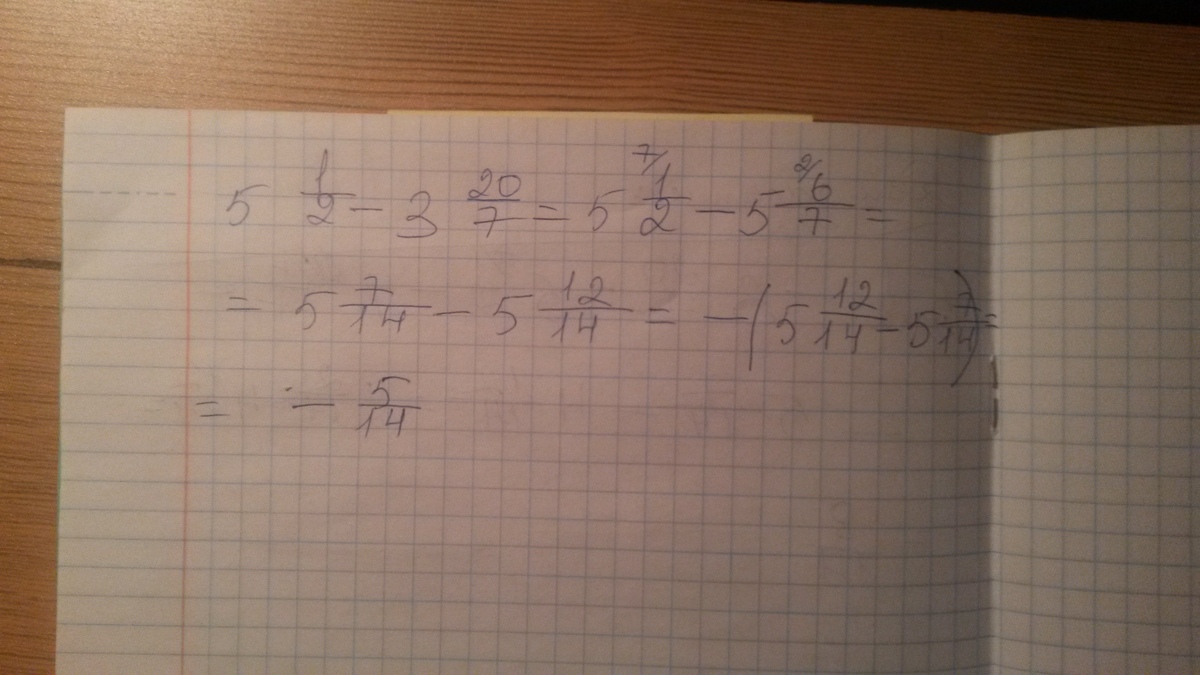 5 1/2 - 3 20/7 = 5 7/ 1/2 - 5 2/ 6/7 =
= 5 7/14 - 5 12/14 = -(5 12/14 - 5 7/14) =
= - 5/14